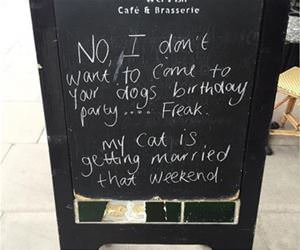 Café & Brasserie
NO, I don't
want to come to
your dogs birthday
party.... Freak.
my cat is
getting married
that weekend.